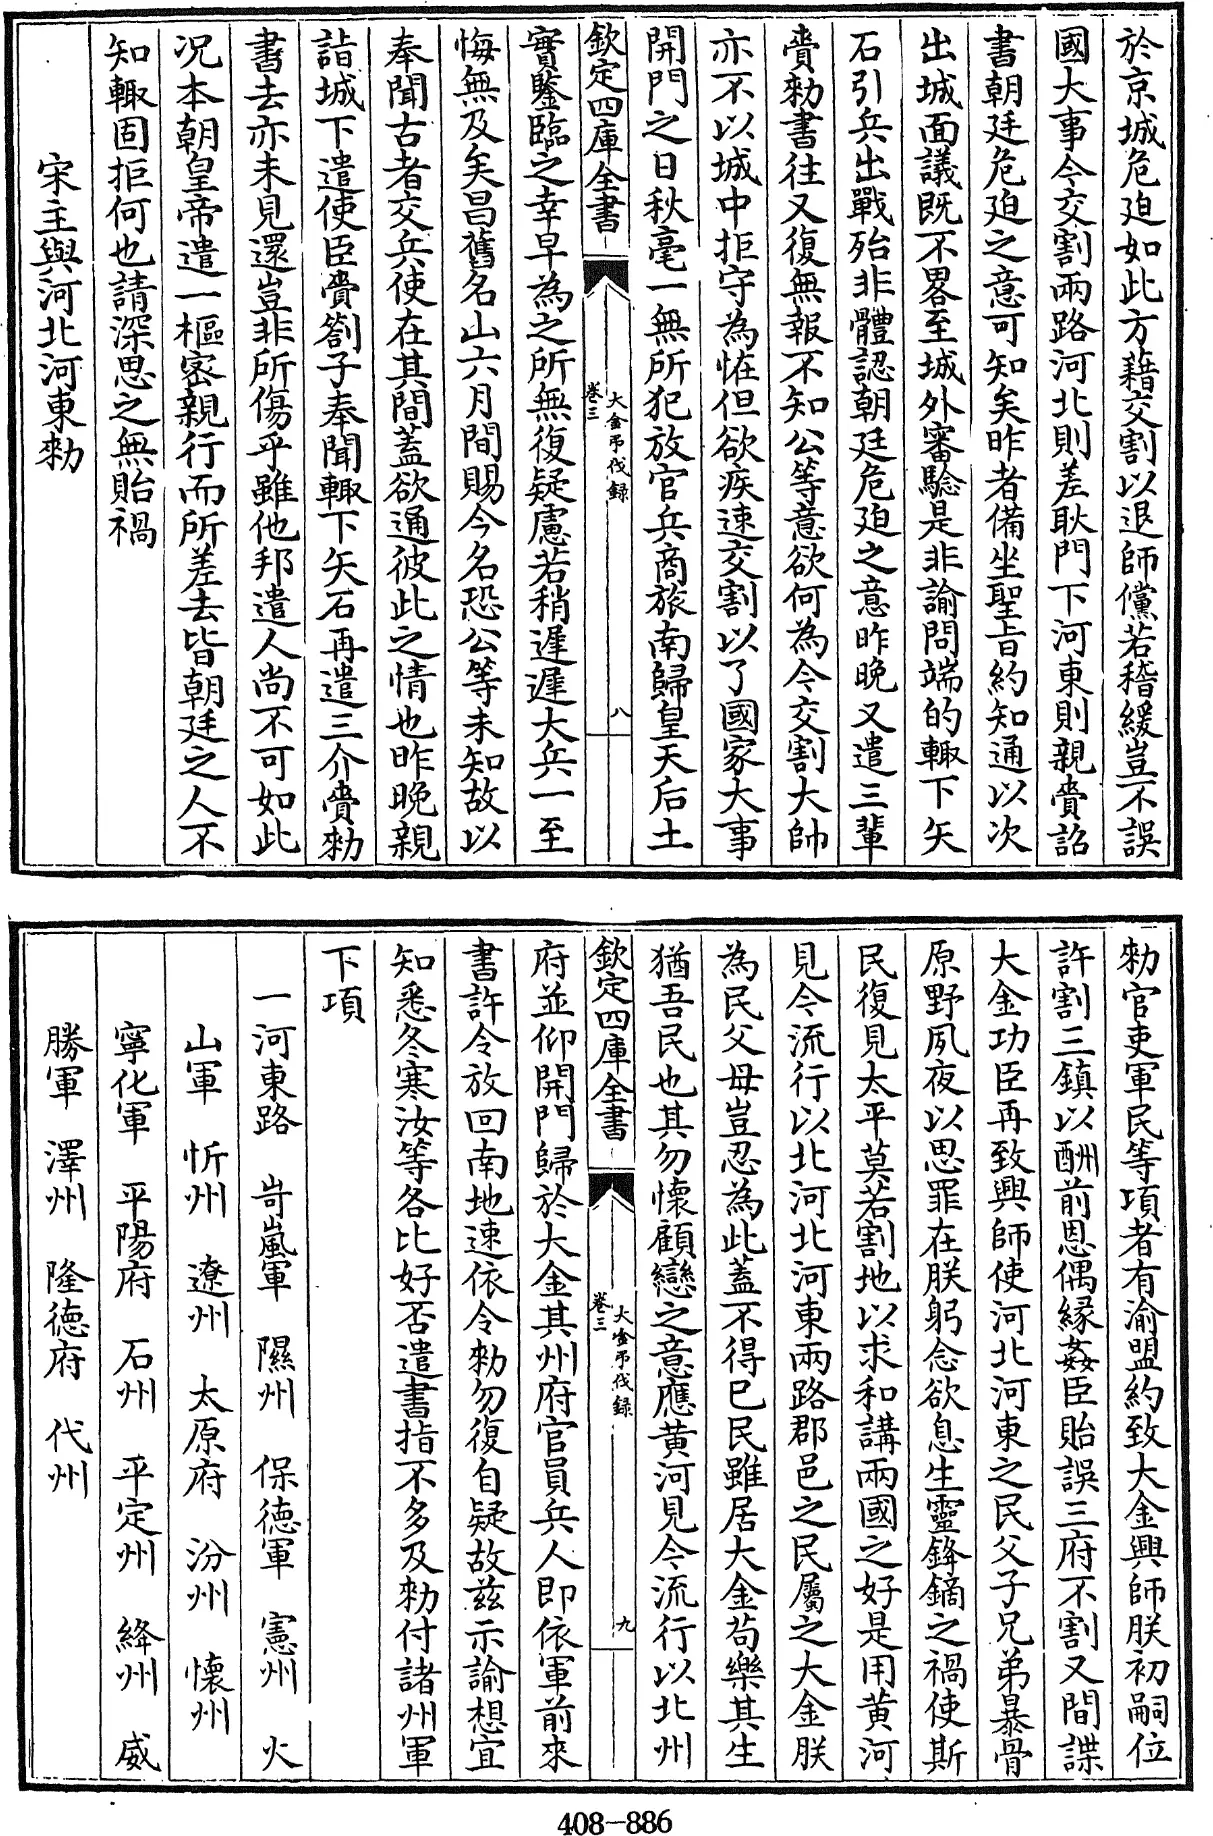 於京城危廹如此方藉交割以退師儻若稽緩豈不誤
國大事今交割兩路河北則差耿門下河東則親賫詔
書朝廷危廹之意可知矣昨者備坐聖旨約知通以次
出城面議既不畧至城外審驗是非諭問端的輙下矢
石引兵出戰殆非體認朝廷危廹之意昨晚又遣三輩
賫勑書往又復無報不知公等意欲何為今交割大帥
亦不以城中拒守為恠但欲疾速交割以了國家大事
開門之日秋毫一無所犯放官兵商旅南歸皇天后土
欽定四庫全書
大金弔伐録
卷三
八
實鑒臨之幸早為之所無復疑慮若稍遲遲大兵一至
悔無及矣昌舊名山六月間賜今名恐公等未知故以
奉聞古者交兵使在其間蓋欲通彼此之情也昨晚親
詣城下遣使臣賫劄子奉聞輙下矢石再遣三介賫勑
書去亦未見還豈非所傷乎雖他邦遣人尚不可如此
况本朝皇帝遣一樞密親行而所差去皆朝廷之人不
知輙固拒何也請深思之無貽禍
宋主與河北河東勑
勑官吏軍民等項者有渝盟約致大金興師朕初嗣位
許割三鎮以酬前恩偶緣姦臣貽誤三府不割又間諜
大金功臣再致興師使河北河東之民父子兄弟暴骨
原野夙夜以思罪在朕躬念欲息生靈鋒鏑之禍使斯
民復見太平莫若割地以求和講兩國之好是用黄河
見今流行以北河北河東兩路郡邑之民屬之大金朕
為民父母豈忍為此蓋不得已民雖居大金苟樂其生
猶吾民也其勿懷顧戀之意應黄河見今流行以北州
欽定四庫全書
大金弔伐録
卷三
九
府並仰開門歸於大金其州府官員兵人即依軍前來
書許令放回南地速依今勑勿復自疑故兹示諭想宜
知悉冬寒汝等各比好否遣書指不多及勑付諸州軍
下項
一河東路　岢嵐軍　隰州　保德軍　憲州　火
山軍　忻州　遼州　太原府　汾州　懷州
寧化軍　平陽府　石州　平定州　絳州　威
勝軍　澤州　隆德府　代州
408-886